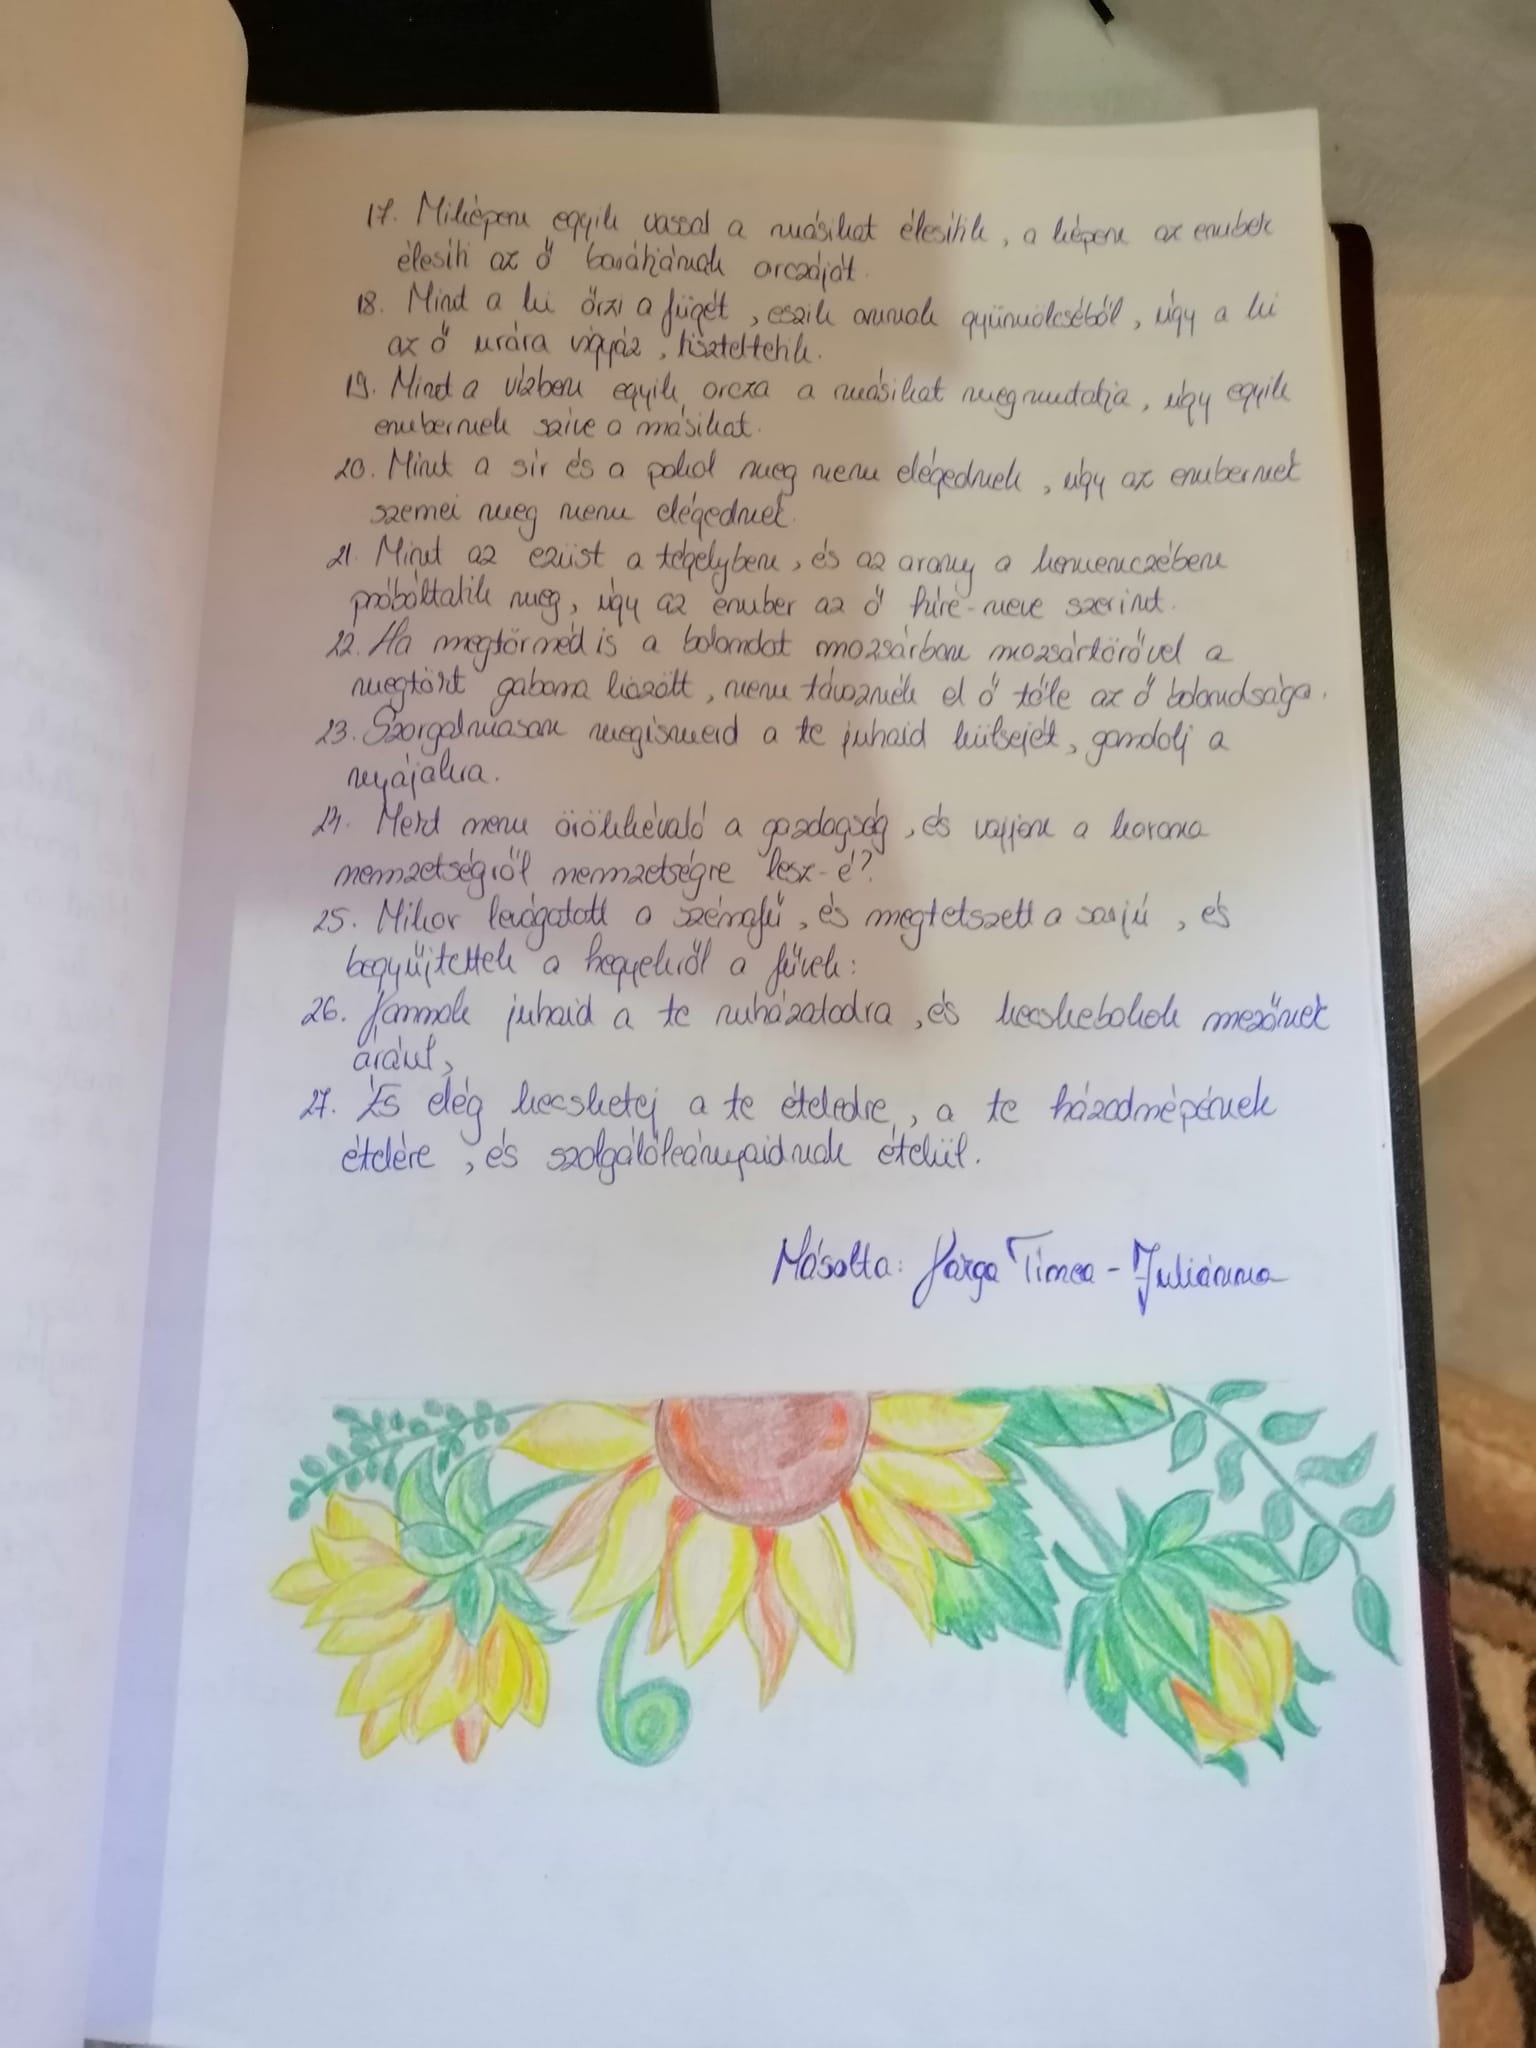 17. Miképen egyik vassal a másikat élesítik, a képen az embek
élesíti az ő barátjának orczáját.
18. Mind a ki őrzi a fügét, eszik annak gyümölcséből, úgy a ki
az ő urára vigyáz, tiszteltetik.
19. Mind a vízben egyik orcza a másikat megmutatja, úgy egyik
embernek szive a másikat.
20. Mint a sír és a pokol meg nem elégednek, úgy az embernek
szemei meg nem elégednek.
21. Mint az ezüst a tégelyben, és az arany a kemenczében
próbáltatik meg, úgy az ember az ő híre-neve szerint.
22. Ha megtörnéd is a bolondot mozsárban mozsártörővel a
megtört gabona között, nem távoznék el ő tőle az ő bolondsága.
23. Szorgalmasan megismerd a te juhaid külsejét, gondolj a
nyájakra.
24. Merd nem örökkévaló a gazdagság, és vajjon a korona
nemzetségről nemzetségre lesz-é?
25. Mikor levágatott a szénafű, és megtetszett a sarjú, és
begyűjtettek a hegyekről a füvek:
26. Vannak juhaid a te ruházatodra, és kecskebakok mezőnek
árául,
27. És elég kecsketej a te ételedre, a te házadnépének
ételére, és szolgálóleányaidnak ételül.
Másolta: Varga Tímea - Juliánna